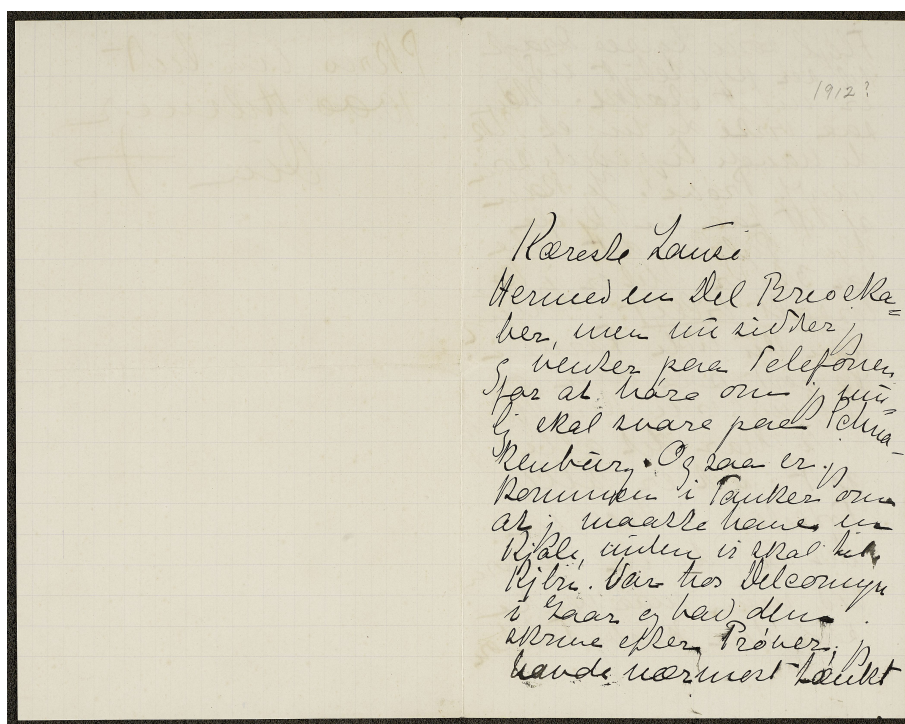 1912?
Kæreste Lausi
Hermed en Del Breoska=
ber, men nu sidder j
og venter paa Telefonen
for at høre om j nu
skal svare paa Schna-
kenburg. Og saa er j
kommen i Tanker om
at j maatte have en
Kjole, inden vi skal til
Kjbn. Var hos Delcomyn
i Gaar og bad dem
skrive efter Prøver, j
havde nærmest tænkt